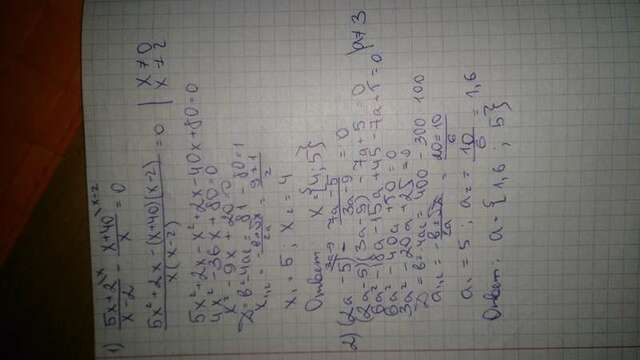 1) (5x+2 \x)/(x-2) - (x+40 \x-2)/x = 0
(5x²+2x-(x+40)(x-2))/(x(x-2)) = 0 | x≠0 x≠2
5x²+2x-x²+2x-40x+80=0
4x²-36x+80=0
x²-9x+20=0
D=b²-4ac=81-80=1
x₁,₂ = (-b±√D)/2a = (9±1)/2
x₁=5; x₂=4
Ответ x={4;5}
2) (2a-5) \3a-9 - (7a-5)/(3a-9) = 0
(2a-5)(3a-9)-7a+5=0 | a≠3
6a²-18a-15a+45-7a+5=0
6a²-40a+50=0
3a²-20a+25=0
D=b²-4ac=400-300=100
a₁,₂ = (-b±√D)/2a = (20±10)/6
a₁=5; a₂=10/6=1,6
Ответ: a={1,6; 5}